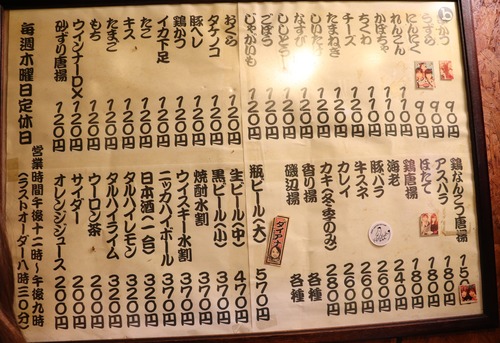 かつ 90円
うずら 90円
にんにく 90円
れんこん 110円
かぼちゃ 110円
ちくわ 110円
チーズ 120円
たまねぎ 120円
しいたけ 120円
なすび 120円
ししとう 120円
ごぼう 120円
じゃがいも 120円
おくら 120円
タケノコ 120円
豚ヘレ 120円
鶏かつ 120円
イカ下足 120円
たこ 120円
キス 120円
たまご 120円
もち 120円
ウインナーDX 120円
砂ずり唐揚 120円
毎週木曜日定休日
鶏なんこつ唐揚 150
アスパラ 180円
ほたて 180円
鶏唐揚 180円
海老 240円
豚バラ 260円
牛スネ 260円
カレイ 260円
カキ(冬季のみ) 280円
香り揚 各種
磯辺揚 各種
瓶ビール(大) 570円
生ビール(中) 470円
黒ビール(小) 370円
焼酎水割 370円
ウイスキー水割 370円
ニッカハイボール 370円
日本酒(一合) 320円
タルハイレモン 320円
タルハイライム 320円
ウーロン茶 200円
サイダー 200円
オレンジジュース 200円
営業時間午後十二時〜午後九時
(ラストオーダー八時三〇分)